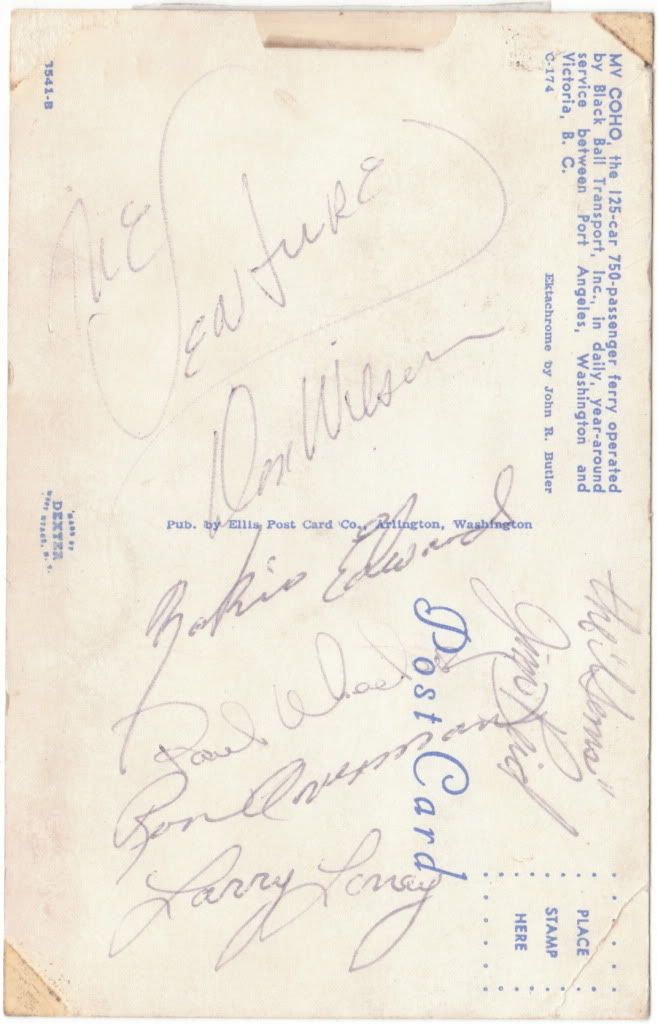 MV COHO, the 125-car 750-passenger ferry operated
by Black Ball Transport, Inc., in daily, year-around
service between Port Angeles, Washington and
Victoria, B. C.
C-174
Ektachrome by John R. Butler
3541-B
THE
VENTURE
Don Wilson
Pub. by Ellis Post Card Co., Arlington, Washington
MADE BY
DEXTER
Edward
Paul
Ron Overman
Larry
The "Gems"
Jim
Post Card
PLACE
STAMP
HERE